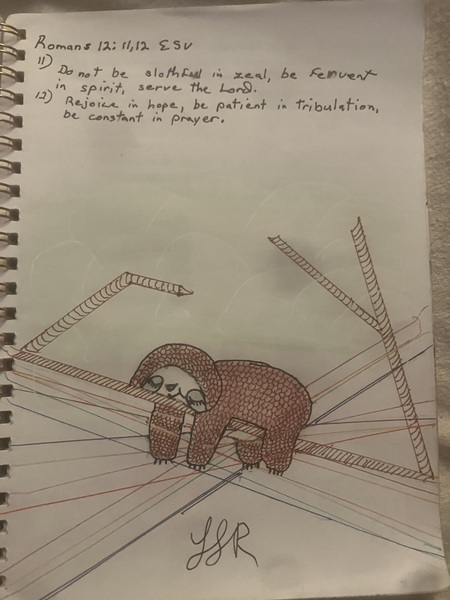 Romans 12:11,12 ESV
11) Do not be slothful in zeal, be fervent
in spirit, serve the Lord.
12) Rejoice in hope, be patient in tribulation,
be constant in prayer.